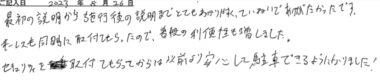 ご記入日 2023年 8月 26日
最初の説明から施行後の説明までとてもわかりやすく、ていねいで有難たかったです。
キーレスも同時に取付てもらったので、普段の利便性も増しました。
セキュリティを取付てもらってからは以前より安心して駐車できるようになりました!